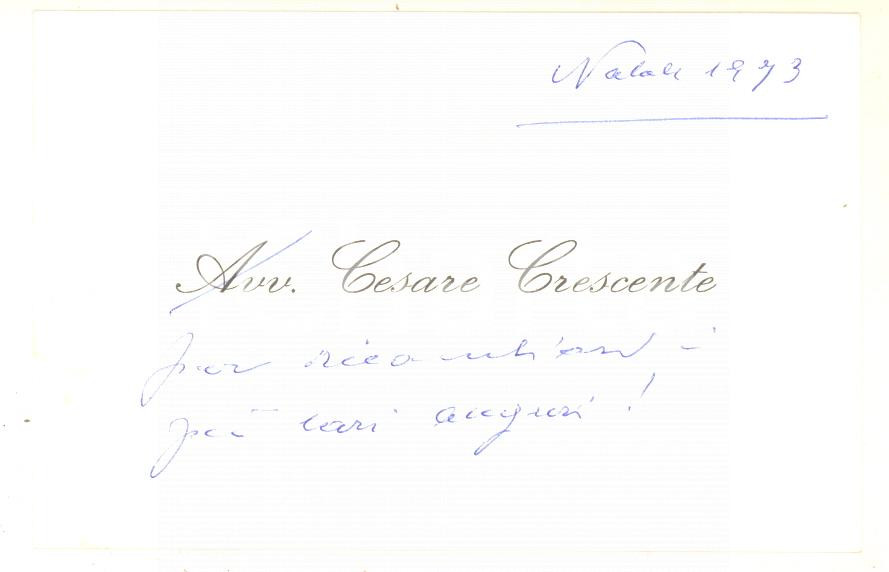 Natale 1973
Avv. Cesare Crescente
per ricambiare i
più cari auguri!